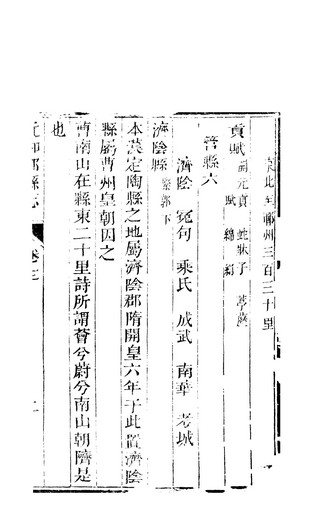 東北至鄆州三百三十里
貢賦 開元貢 蛇牀子 葶藶
賦 綿 絹
管縣六
濟陰 冤句 乘氏 成武 南華 考城
濟陰縣 緊 郭下
本漢定陶縣之地屬濟陰郡隋開皇六年于此置濟陰
縣屬曹州皇朝因之
曹南山在縣東二十里詩所謂薈兮蔚兮南山朝隮是
也